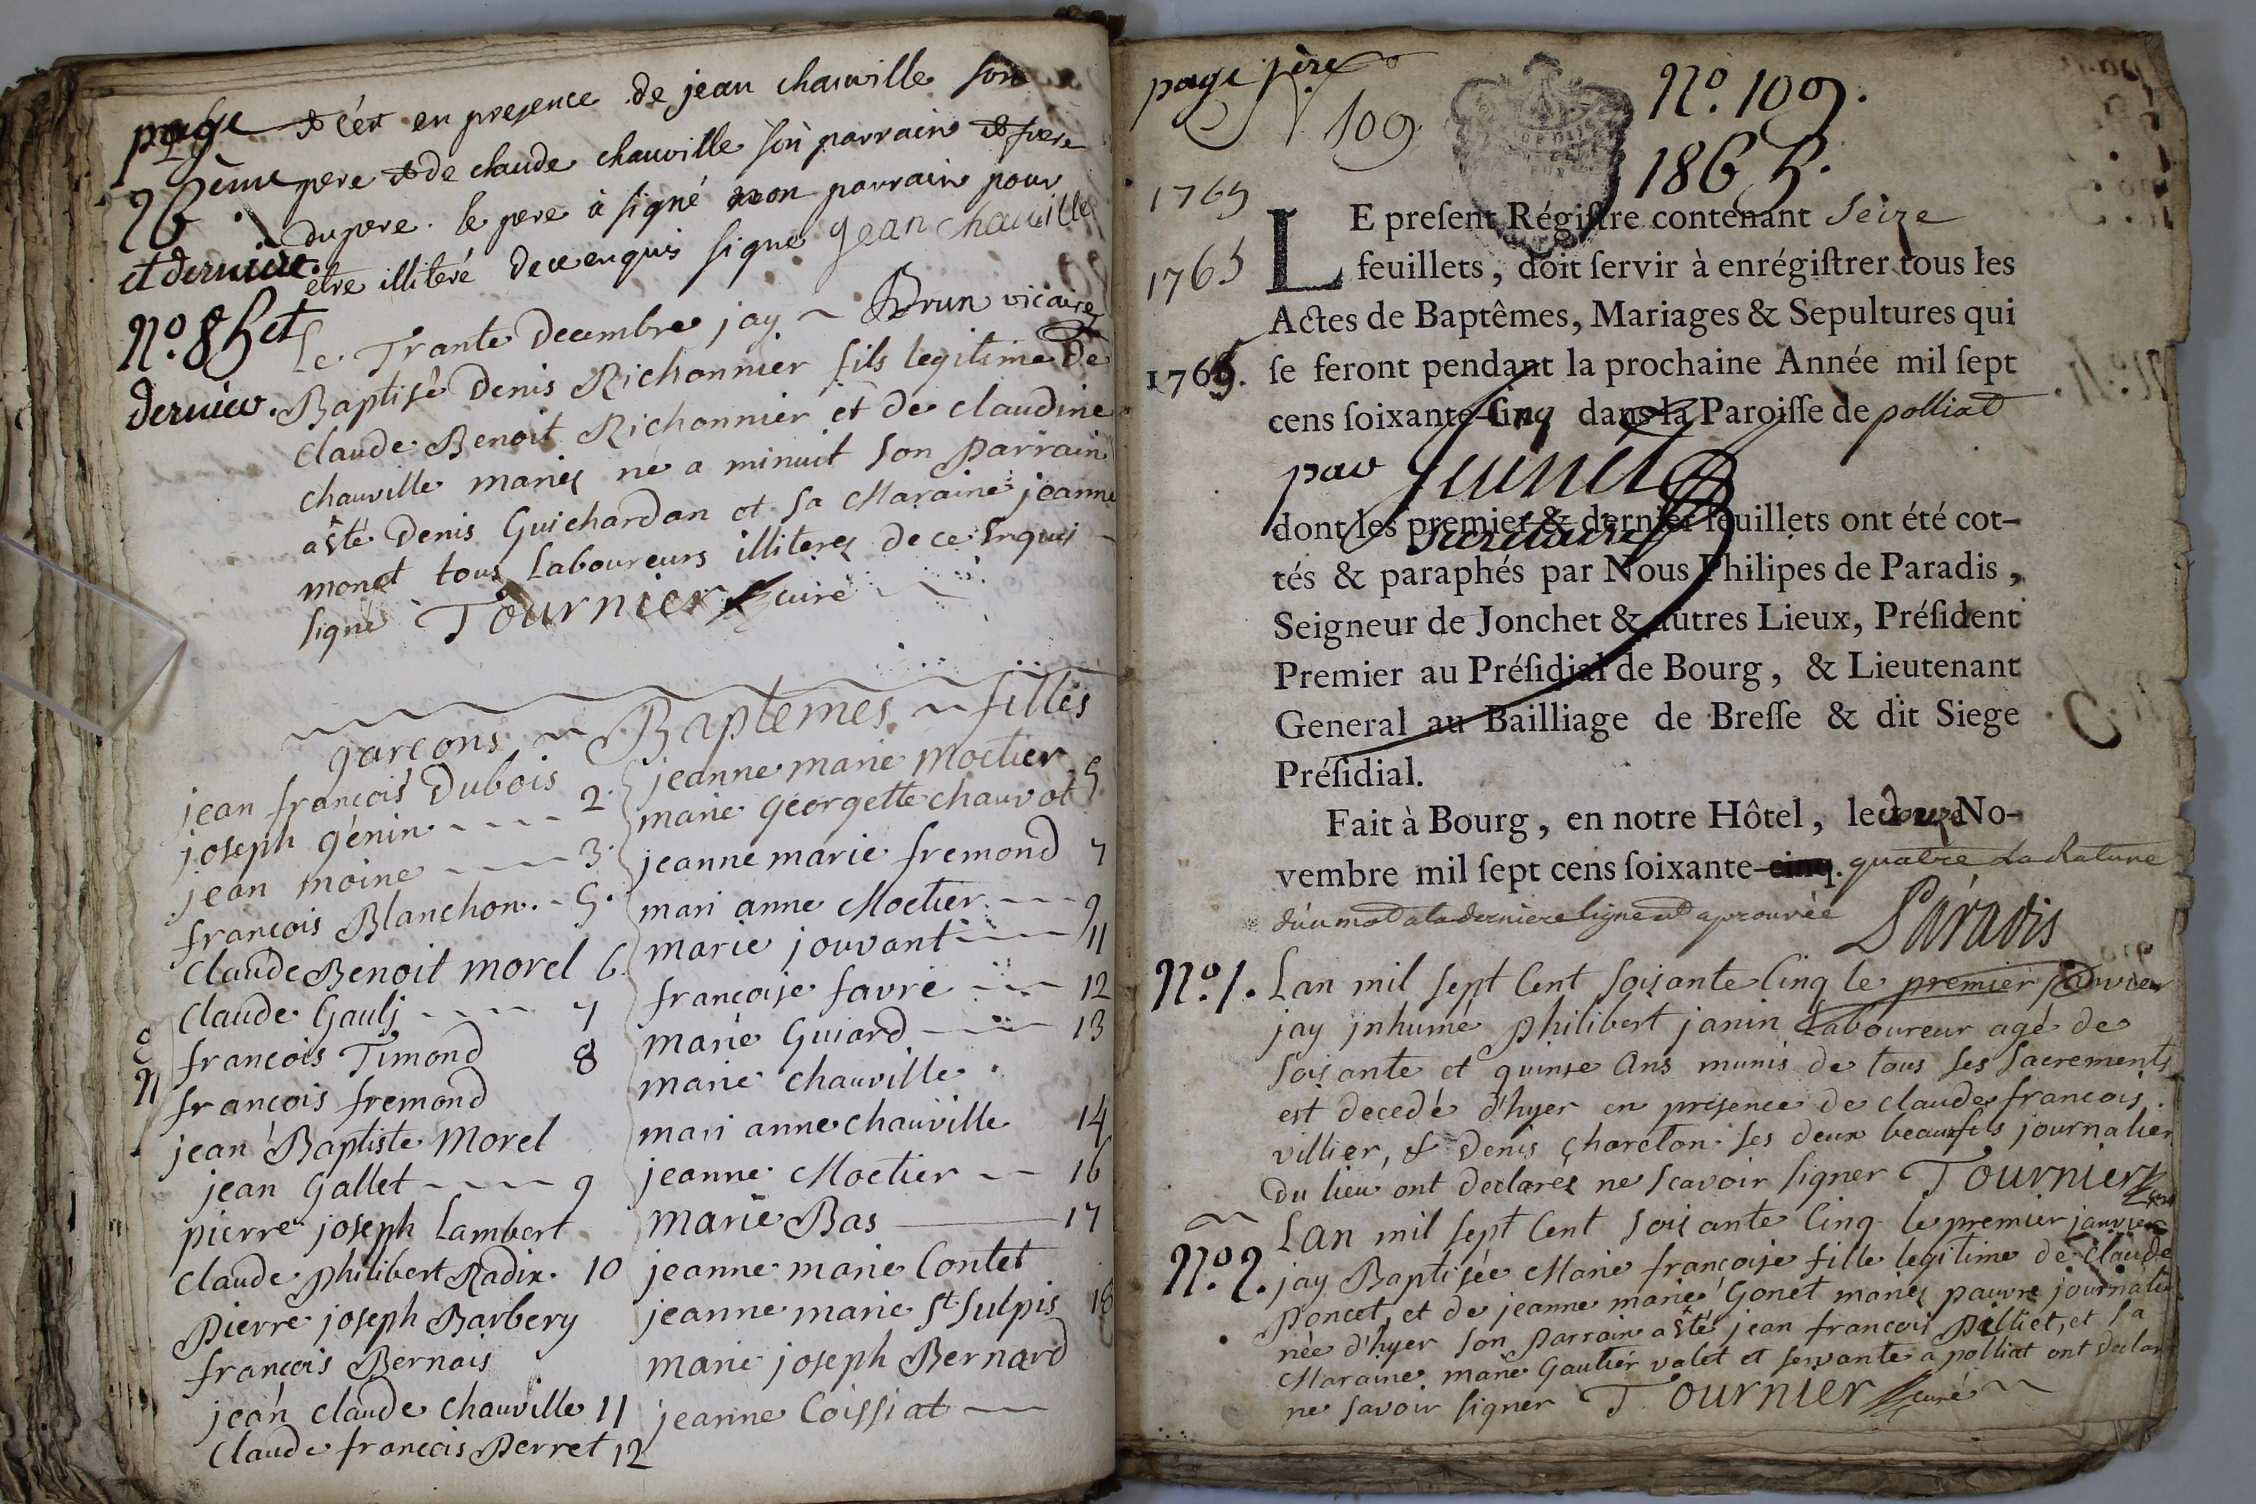 page & c'est en presence de jean chauville son
26ème pere & de claude chauville son parrain & frere
du pere. le pere à signé non parrain pour
et derniere.
etre illiteré de ce enquis signe jean chauville
Brun vicaire
No. 85 et
dernier.
Le Trante Decembre jay
Baptisé Denis Richonnier fils legitime De
Claude Benoit Richonnier et de claudine
chauville mariés né a minuit son Parrain
a êté Denis Guichardan et sa Maraine jeanne
monet tous Laboureurs illiterés de ce Enquis
signé Tournier curé
garcons ~ Baptemes ~ filles
jean francois Dubois
joseph génin 2.
jean moine 3.
francois Blanchon. 5.
Claude Benoit morel 6
Claude Gaulj 7
francois Timond 8
francois fremond
jean Baptiste Morel
jean Gallet 9
pierre joseph Lambert
Claude philibert Radix. 10
Pierre joseph Barbery
francois Bernais
jean claude Chauville 11
Claude francois Perret 12
jeanne marie Moctier
marie Georgette chauvot 5
jeanne marie fremond 7
mari anne Moctier 9
marie jouvant 11
francoise favre 12
marie Guiard 13
marie chauville
mari anne chauville 14
jeanne Moctier 16
marie Bas 17
jeanne marie Contet
jeanne marie St Sulpis 18
marie joseph Bernard
jeanne Coissiat
page 1ère
109
No. 109.
1865.
1765
1765
1765.
LE preſent Régiſtre contenant seize
feuillets, doit ſervir à enrégiſtrer tous les
Actes de Baptêmes, Mariages & Sepultures qui
ſe feront pendant la prochaine Année mil ſept
cens ſoixante-cinq dans la Paroiſſe de polliat
par
secretaire
dont les premier & dernier feuillets ont été cot-
tés & paraphés par Nous Philipes de Paradis,
Seigneur de Jonchet & autres Lieux, Préſident
Premier au Préſidial de Bourg, & Lieutenant
General au Bailliage de Breſſe & dit Siege
Préſidial.
Fait à Bourg, en notre Hôtel, le douze No-
vembre mil ſept cens ſoixante-cinq. quatre La Rature
d'un mot a la derniere ligne est aprouvée Paradis
No. 1. Lan mil sept Cent soisante Cinq le premier janvier
jay jnhumé philibert janin Laboureur agé de
soisante et quinse Ans munis de tous ses sacrements
est decedé d'hyer en presence de claude francois
villier, & Denis Chareton ses deux beaufils journalier
du lieu ont declarés ne scavoir signer Tournier curé
No. 2. Lan mil sept Cent soisante Cinq le premier janvier
jay Baptisée Marie francoise fille legitime de Claude
Poncet, et de jeanne marie Gonet mariés pauvre journalie
née d'hyer son Parrain a êté jean francois Pilliet, et sa
Maraine marie Gautier valet et servante a polliat ont declaré
ne savoir signer Tournier curé